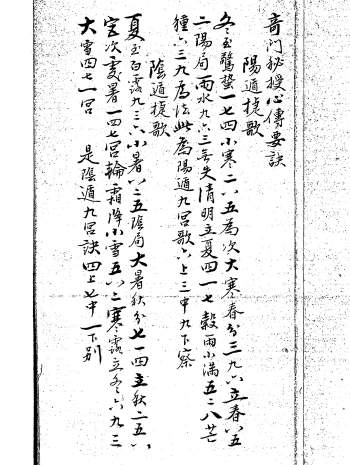 奇门秘授心傳要訣
陽遁捷歌
冬至驚蟄一七四小寒二八五為次大寒春分三九六立春八五
二陽局雨水九六三無失清明立夏四一七穀雨小滿五二八芒
種六三九為法此為陽遁九宮歌六上三中九下察
陰遁捷歌
夏至白露九三六小暑八二五陰局大暑秋分七一四立秋二五八
宮次處暑一四七宮輪霜降小雪五八二寒露立冬六九三
大雪四七一宮 是陰遁九宮訣四上七中一下別